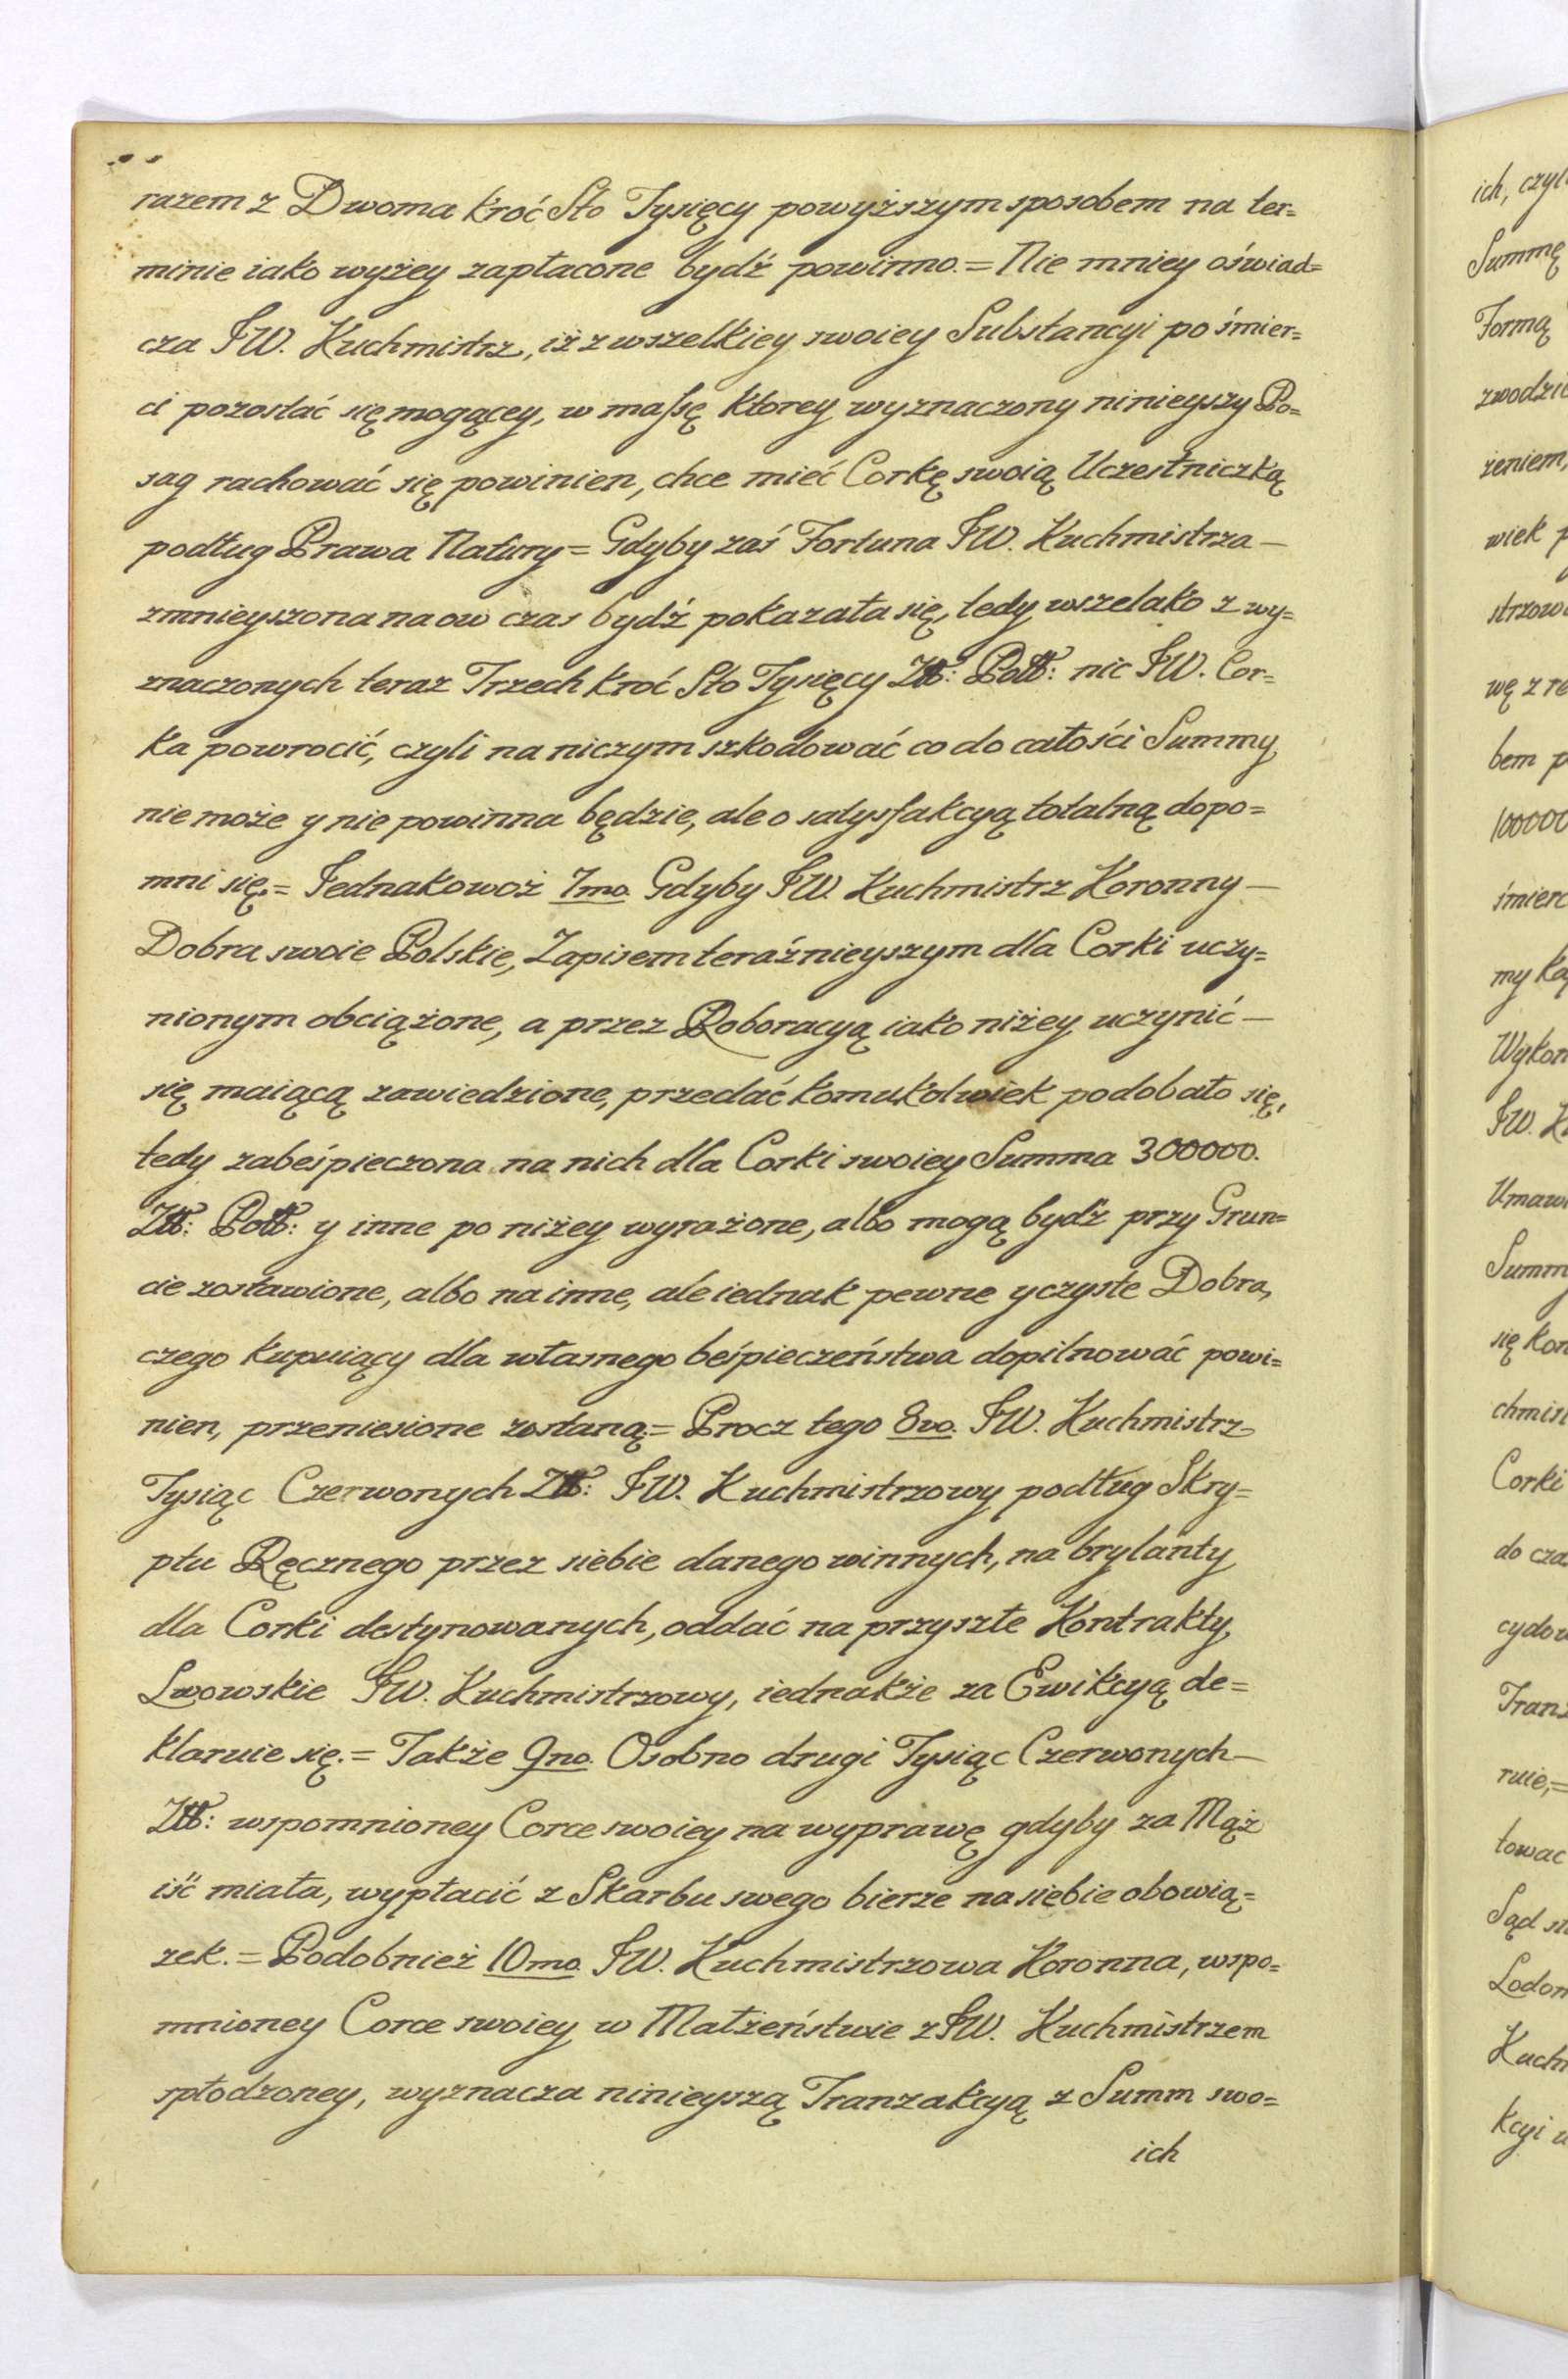 razem z Dwoma kroć Sto Tysięcy powyższym sposobem na ter=
minie iako wyżey zapłacone bydź powinno. = Nie mniey oświad=
cza JW. Kuchmistrz, iż z wszelkiey swoiey Substancyi po śmier=
ci pozostać się mogącey, w massę ktorey wyznaczony ninieyszy Po=
sag rachować się powinien, chce mieć Corkę swoią Uczestniczką
podług Prawa Natury = Gdyby zaś Fortuna JW. Kuchmistrza —
zmnieyszona na ow czas bydź pokazała się, tedy wszelako z wy=
znaczonych teraz Trzech kroć Sto Tysięcy Złł: Poll: nic JW. Cor=
ka powrocić, czyli na niczym szkodować co do całości Summy
nie może y nie powinna będzie, ale o satysfakcyą totalną dopo=
mni się. = Jednakowoż 7mo. Gdyby JW. Kuchmistrz Koronny —
Dobra swoie Polskie, Zapisem teraźnieyszym dla Corki uczy=
nionym obciążone, a przez Roboracyą iako niżey uczynić —
się maiącą zawiedzione, przedać komukolwiek podobało się,
tedy zabeśpieczona na nich dla Corki swoiey Summa 300000.
Złł: Poll: y inne po niżey wyrażone, albo mogą bydź przy Grun=
cie zostawione, albo na inne, ale iednak pewne y czyste Dobra,
czego kupuiący dla własnego beśpieczeństwa dopilnować powi=
nien, przeniesione zostaną = Procz tego 8vo. JW. Kuchmistrz
Tysiąc Czerwonych Złł: JW. Kuchmistrzowy podług Skry=
ptu Ręcznego przez siebie danego winnych, na brylanty
dla Corki destynowanych, oddać na przyszłe Kontrakty
Lwowskie JW. Kuchmistrzowy, iednakże za Ewikcyą de=
klaruie się. = Także 9no. Osobno drugi Tysiąc Czerwonych —
Złł: wspomnioney Corce swoiey na wyprawę gdyby za Mąż
iść miała, wypłacić z Skarbu swego bierze na siebie obowią=
zek. = Podobnież 10mo. JW. Kuchmistrzowa Koronna, wspo=
mnioney Corce swoiey w Małżeństwie z JW. Kuchmistrzem
spłodzoney, wyznacza ninieyszą Tranzakcyą z Summ swo=
ich
ich, czyl
Summę
Formą
zwodzi
żeniem,
wiek p
strzow
wę z re
bem p
100000
śmierc
my Ka
Wykon
JW. K
Umaw
Summ
się kon
chmist
Corki
do cza
cydow
Tranz
ruie, =
towac
Sąd st
Lodom
Kuchm
kcyi w